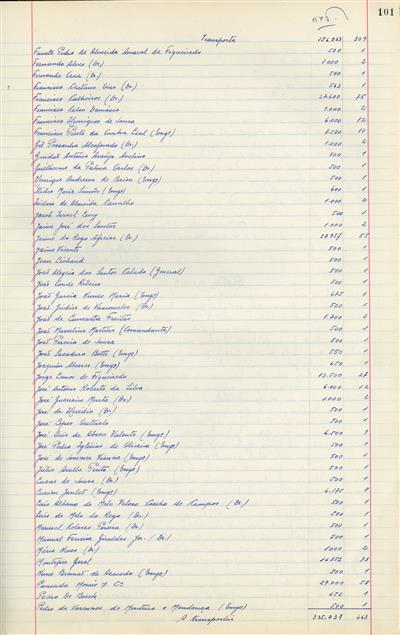 101
Transporte 156.043 309
Fausto Pedro de Almeida Amaral de Figueiredo 500 1
Fernando Alves (Dr) 1.000 2
Fernando Cruz (Dr) 500 1
Francisco Caetano Dias (Dr) 563 1
Francisco Calheiros (Dr) 37.600 75
Francisco Celas Damásio 1.000 2
Francisco Henriques de Sousa 6.000 12
Francisco Pinto da Cunha Leal (Engº) 6.500 12
Gil Pessanha Alcoforado (Dr) 1.000 2
Guidal António Araújo Avelino 500 1
Guilherme da Palma Carlos (Dr) 500 1
Henrique Andresen de Brion (Engº) 500 1
Ilídio Mariz Simões (Engº) 600 1
Isidoro de Almeida Carvalho 1.000 2
Jacob Israel Levy 500 1
Jaime José dos Santos 1.000 2
Jaime do Rego Afreixo (Dr) 27.757 55
Jaime Vicente 500 1
Jean Richard 500 1
João Alegria dos Santos Calado (General) 500 1
João Conde Ribeiro 500 1
João Garcia Nunes Maria (Engº) 625 1
João Judice de Vasconcelos (Dr) 500 1
João de Lancastre Freitas 1.200 2
João Marcelino Martins (Comandante) 500 1
João Pereira de Sousa 500 1
João Sacadura Botte (Engº) 550 1
Joaquim Alvares (Engº) 650 1
Jorge Comas de Figueiredo 13.500 27
José António Roberto da Silva 6.000 12
José Guerreiro Murta (Dr) 1.000 2
José de Heródio (Dr) 500 1
José Lopes Outeirelo 500 1
José Luis de Abreu Valente (Engº) 4.500 9
José Pedro Iglésias de Oliveira (Engº) 500 1
José de Sommer Vianna (Engº) 500 1
Júlio Aralla Pinto (Engº) 500 1
Lucas de Sousa (Dr) 500 1
Lucien Jantet (Engº) 4.175
Luís Albano de Melo Veloso Coelho de Campos (Dr) 500 1
Luís de Melo do Rego (Dr.) 500 1
Manuel Colares Pereira (Dr.) 500 1
Manuel Ferreira Giraldes Jor. (Dr.) 500 1
Mário Alves (Dr.) 1.000 2
Montepio Geral 73
Nuno Brandão de Azevedo (Engº) 500 1
Pancada Morais & Cª 29.000 58
Pedro De Boeck 652 1
Pedro de Varennes de Monteiro e Mendonça (Engº) 500 1
A transportar 335.039 663